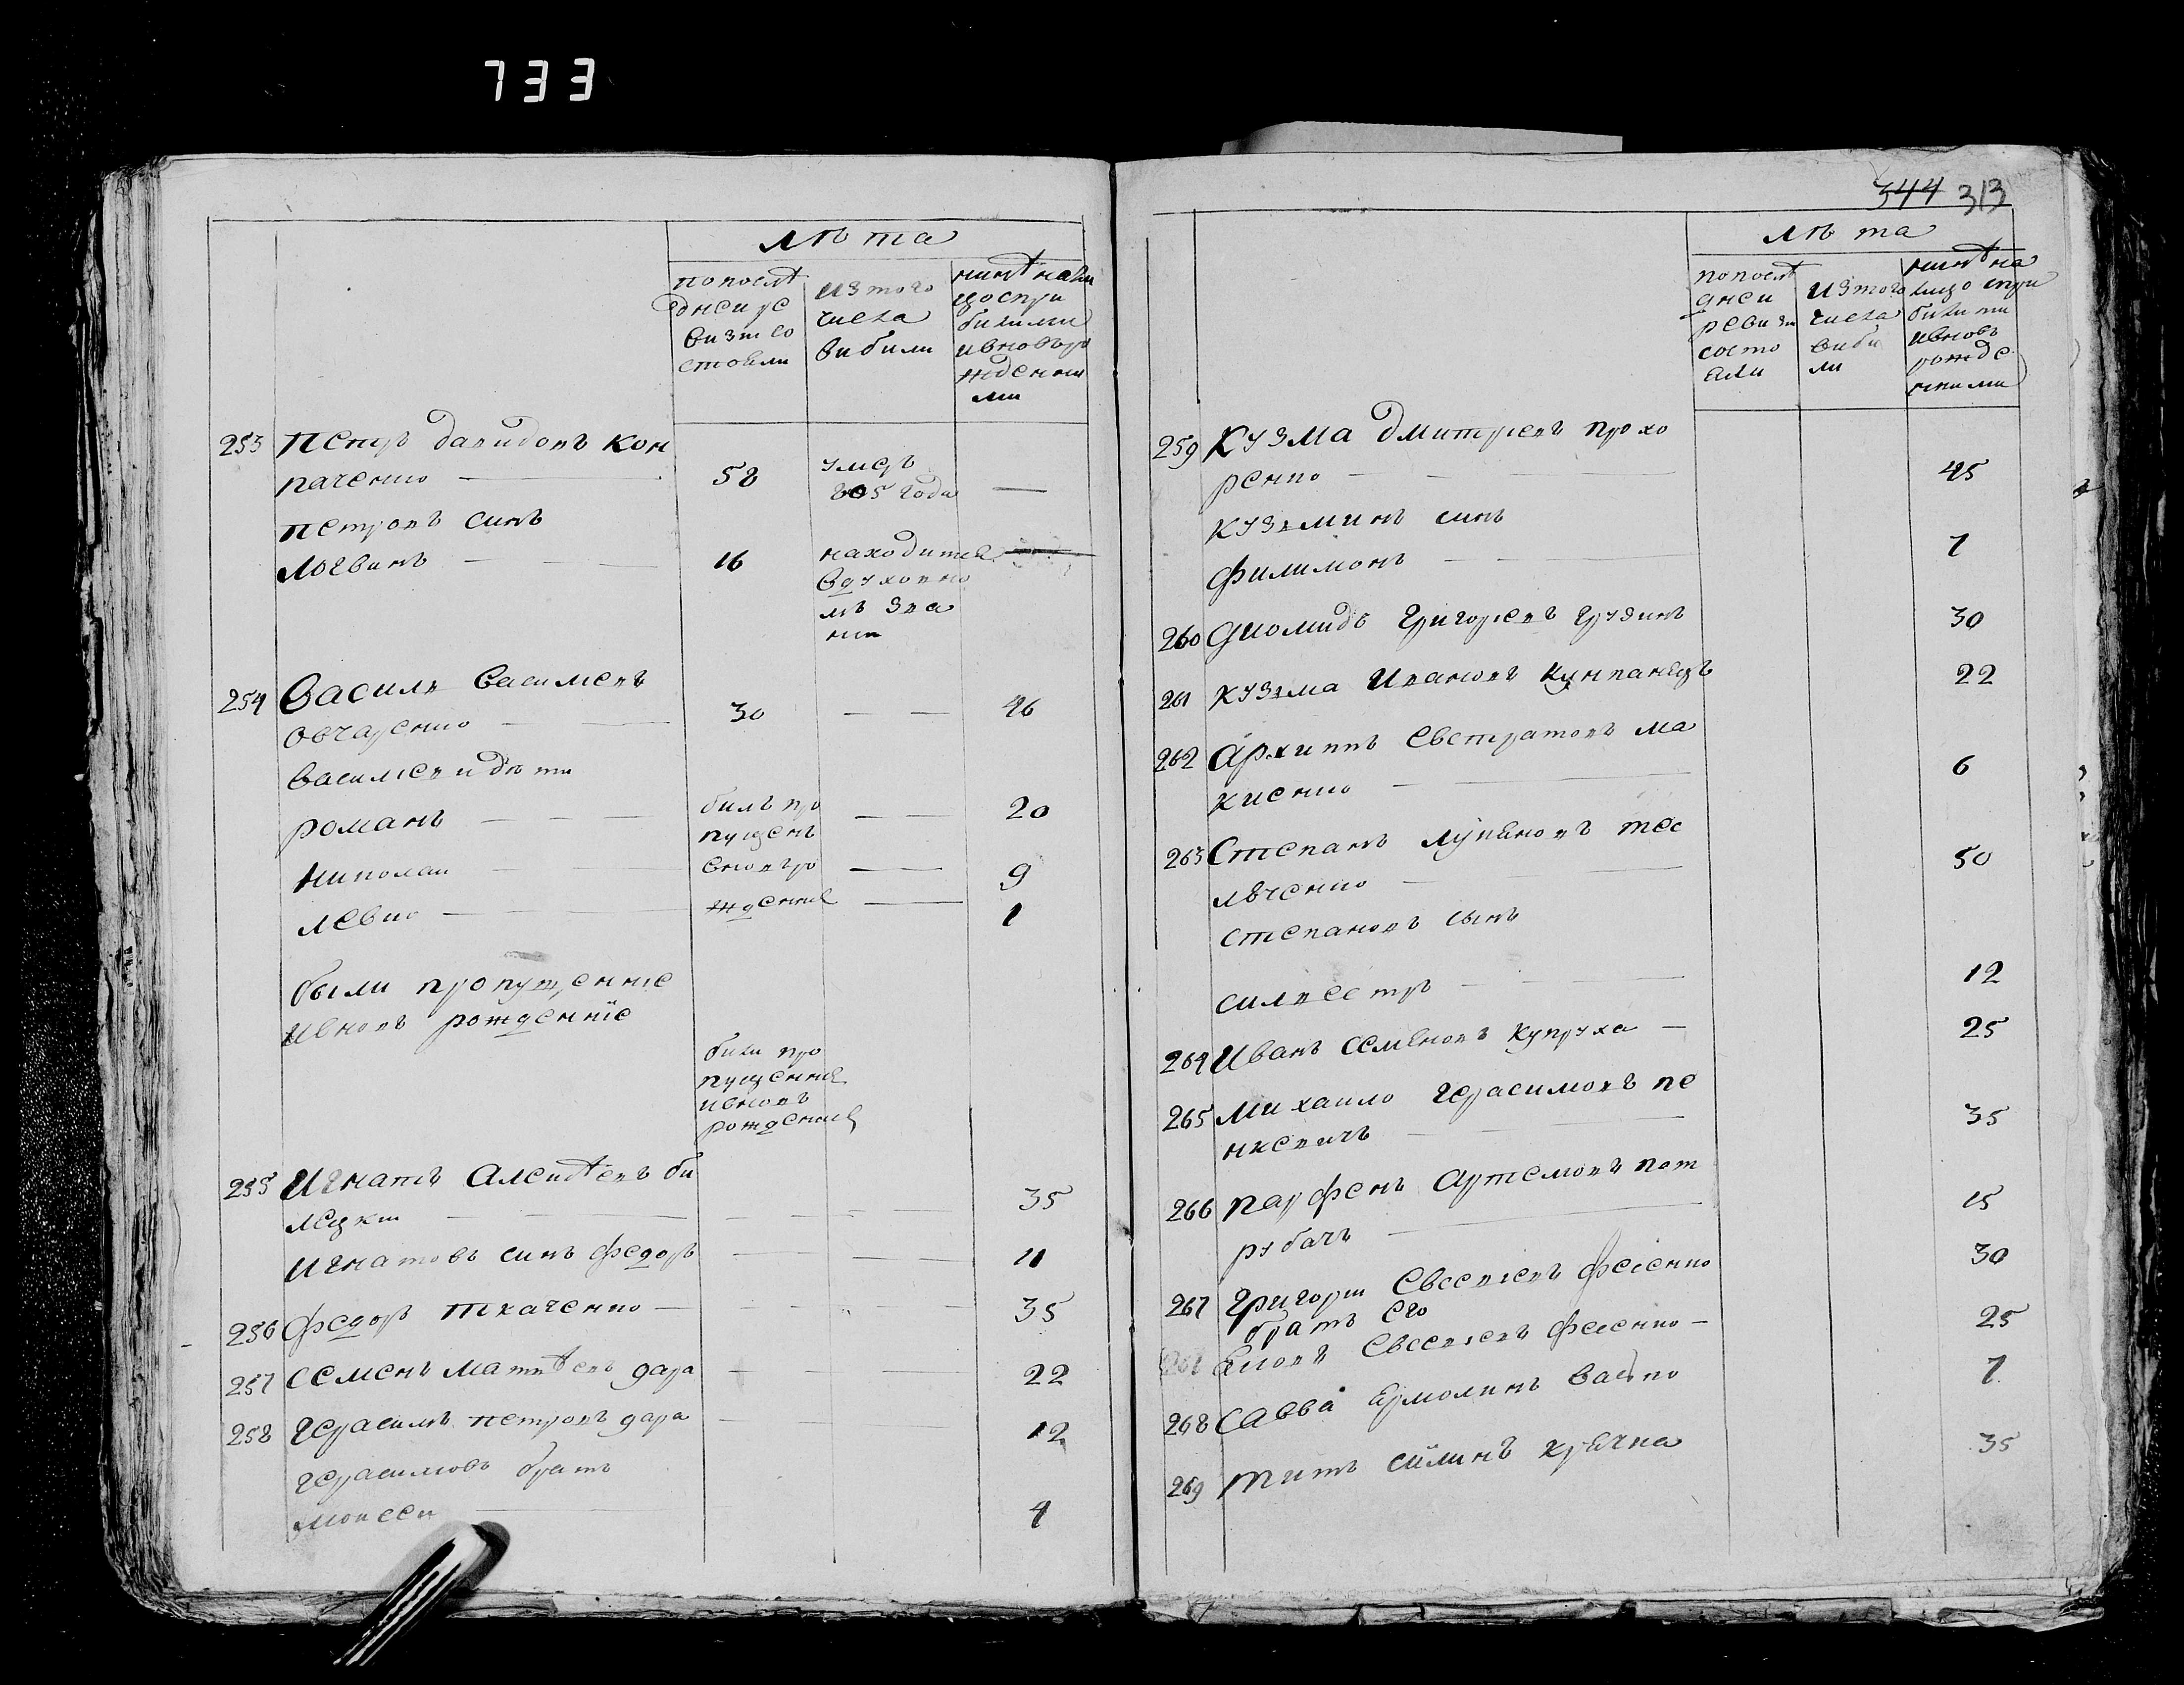 733
лѣта
попослѣ
днеи ре
визи со
стояли
изтого
числа
вибили
нинѣ нали
цо спри
билими
ивновъро
жденни
ми
253 Петръ давидовъ кон
раченко 58 умеръ
805 года
петровъ синъ
логвинъ 16 находится
вдуховно
мъ зва
нии
254 Василь Васильевъ
овчаренко 30 46
васильеви дѣти
романъ билъ про
пущенъ 20
николаи вновъро 9
левко жденние 1
были пропущеннiе
ивновъ рожденнїе
били про
пущенние
ивновъ
рожденние
255 Игнатъ Алексѣевъ би
лецки 35
игнатовъ синъ федоръ 11
256 федоръ ткаченко 35
257 семенъ матвѣевъ дара 22
258 герасимъ петровъ дара 12
герасимовъ братъ
моисеи 4
344 313
лѣта
попослѣ
днеи
ревизи
состо
яли
изтого
числа
виби
ли
нинѣ на
лицо спри
билими
ивновъ
рожде
нними
259 кузма дмитриевъ прохо
ренко 45
кузьминъ синъ
филимонъ 7
260 диомидъ григориевъ грузинъ 30
261 кузьма Ивановъ кумпанецъ 22
262 архипъ Евстратовъ ма
киенко 6
263 Степанъ лукяновъ тес
лѣченко 50
степановъ сынъ
силвестръ 12
264 Иванъ семеновъ купруха 25
265 михаило герасимовъ пе
нкевичъ 35
266 парфенъ Артемовъ пот
рубачъ 15
267 григори Евсеевъ фесенко 30
братъ его
Яковъ Евсеевъ фесенко 25
268 савва Ермолинъ 7
269 титъ силинъ крячка 35